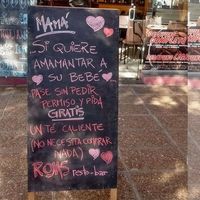 MAMÁ
SI QUIERE
AMAMANTAR A
SU BEBE
PASE SIN PEDIR
PERMISO Y PIDA
GRATIS
UN TÉ CALIENTE
(NO NECESITA COMPRAR
NADA)
ROMS resto-bar